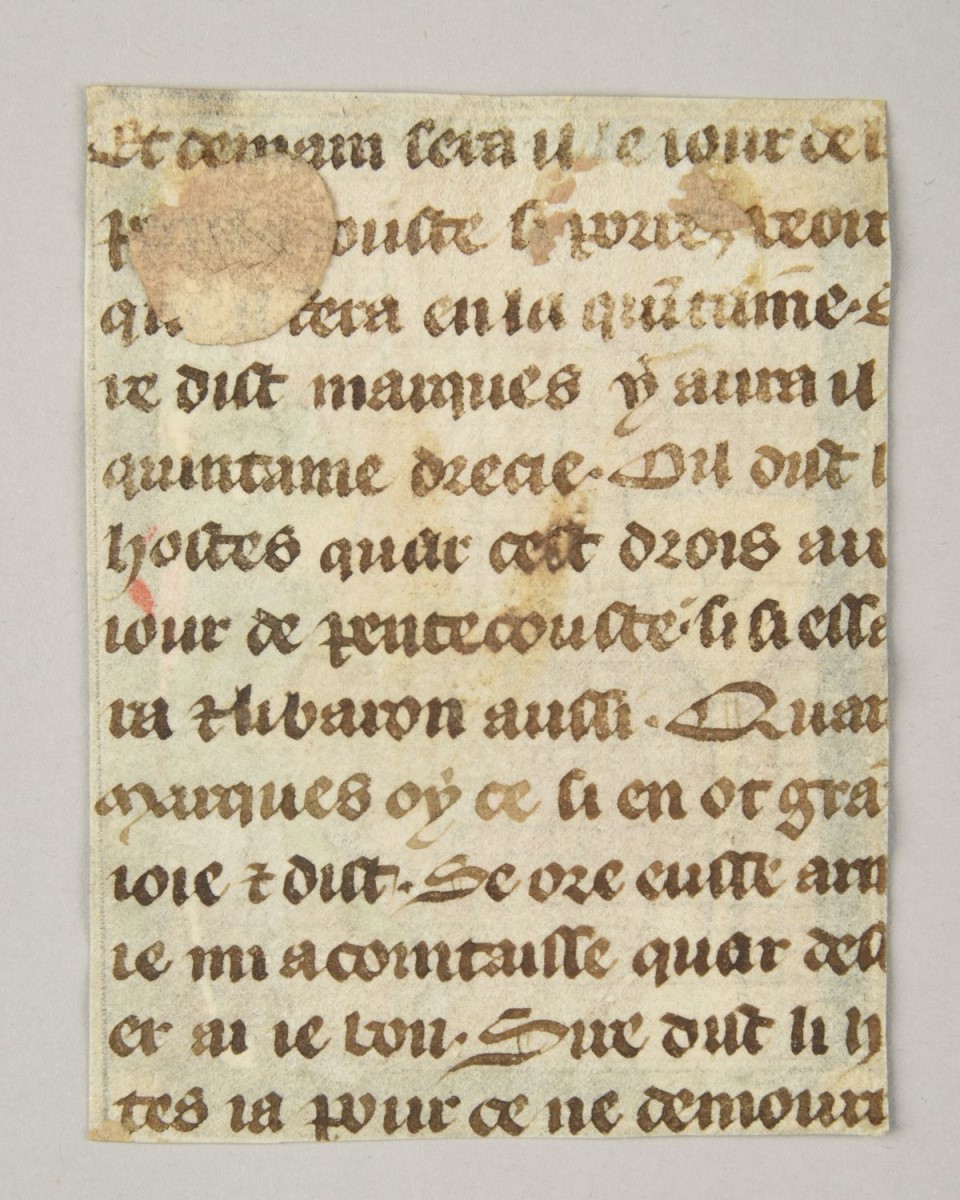 Et demain sera il le iour de l
p ouste si porrez veoir
qui tera en la quītaīne. S
ire dist marques y aura il
quintaine drecie. Oil dist l
hostes quar cest drois au
iour de pentecouste. si si essa
ra ⁊ li baron aussi. Quar
marques oy ce si en ot grā
ioie ⁊ dist. Se ore eusse arm
ie mi acointaisse quar dest
er ai ie bon. Sire dist li h
tes ia pour ce ne demourr